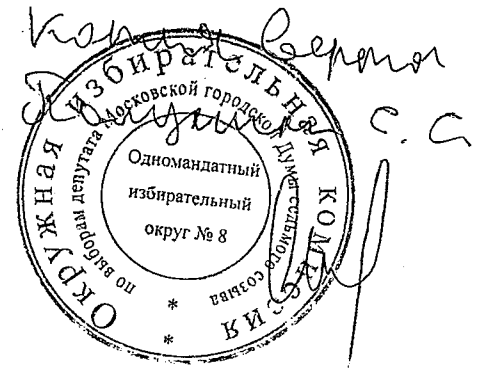 Копия верна
С. С
Окружная избирательная комиссия
по выборам депутата Московской городской Думы седьмого созыва
Одномандатный
избирательный
округ № 8